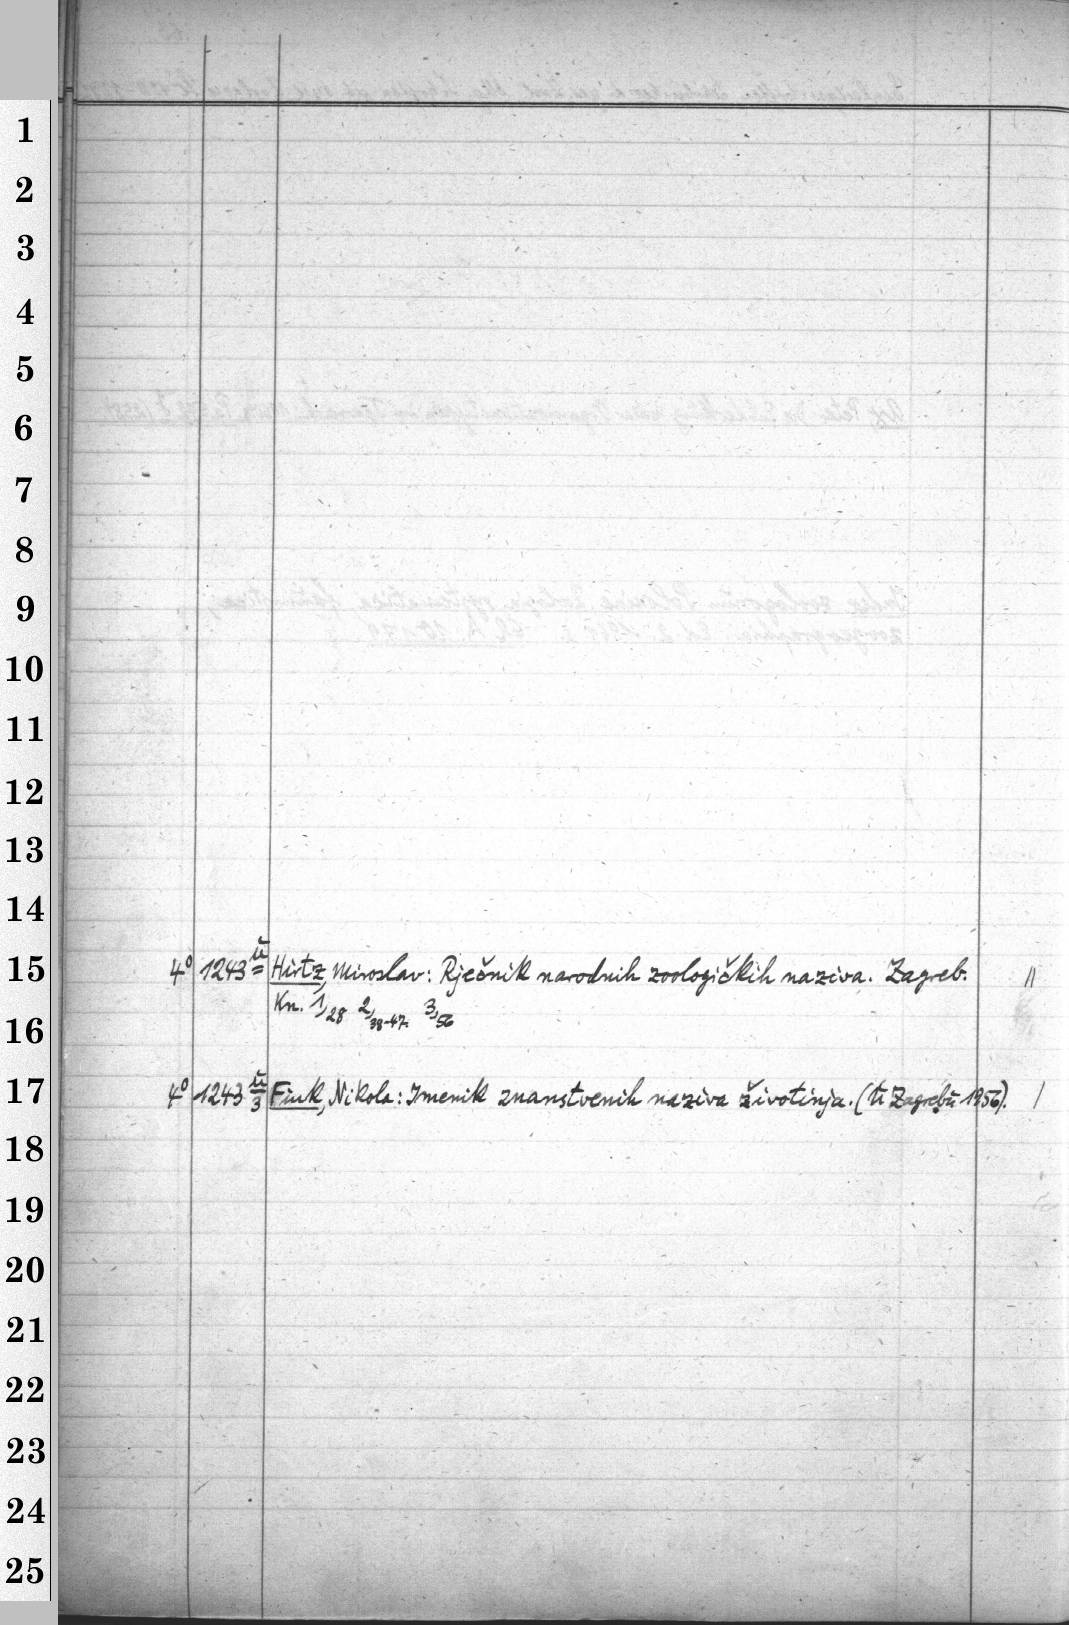 1
2
3
4
5
6
7
8
9
10
11
12
13
14
15 4° 1243 ŭ Hirtz, Miroslav: Rječnik narodnih zoologičkih naziva. Zagreb. II
Kn. 1/28 2/38-47. 3/56
16
17 4° 1243 ŭ/3 Fink, Nikola: Imenik znanstvenih naziva životinja. (U Zagrebŭ 1956). I
18
19
20
21
22
23
24
25